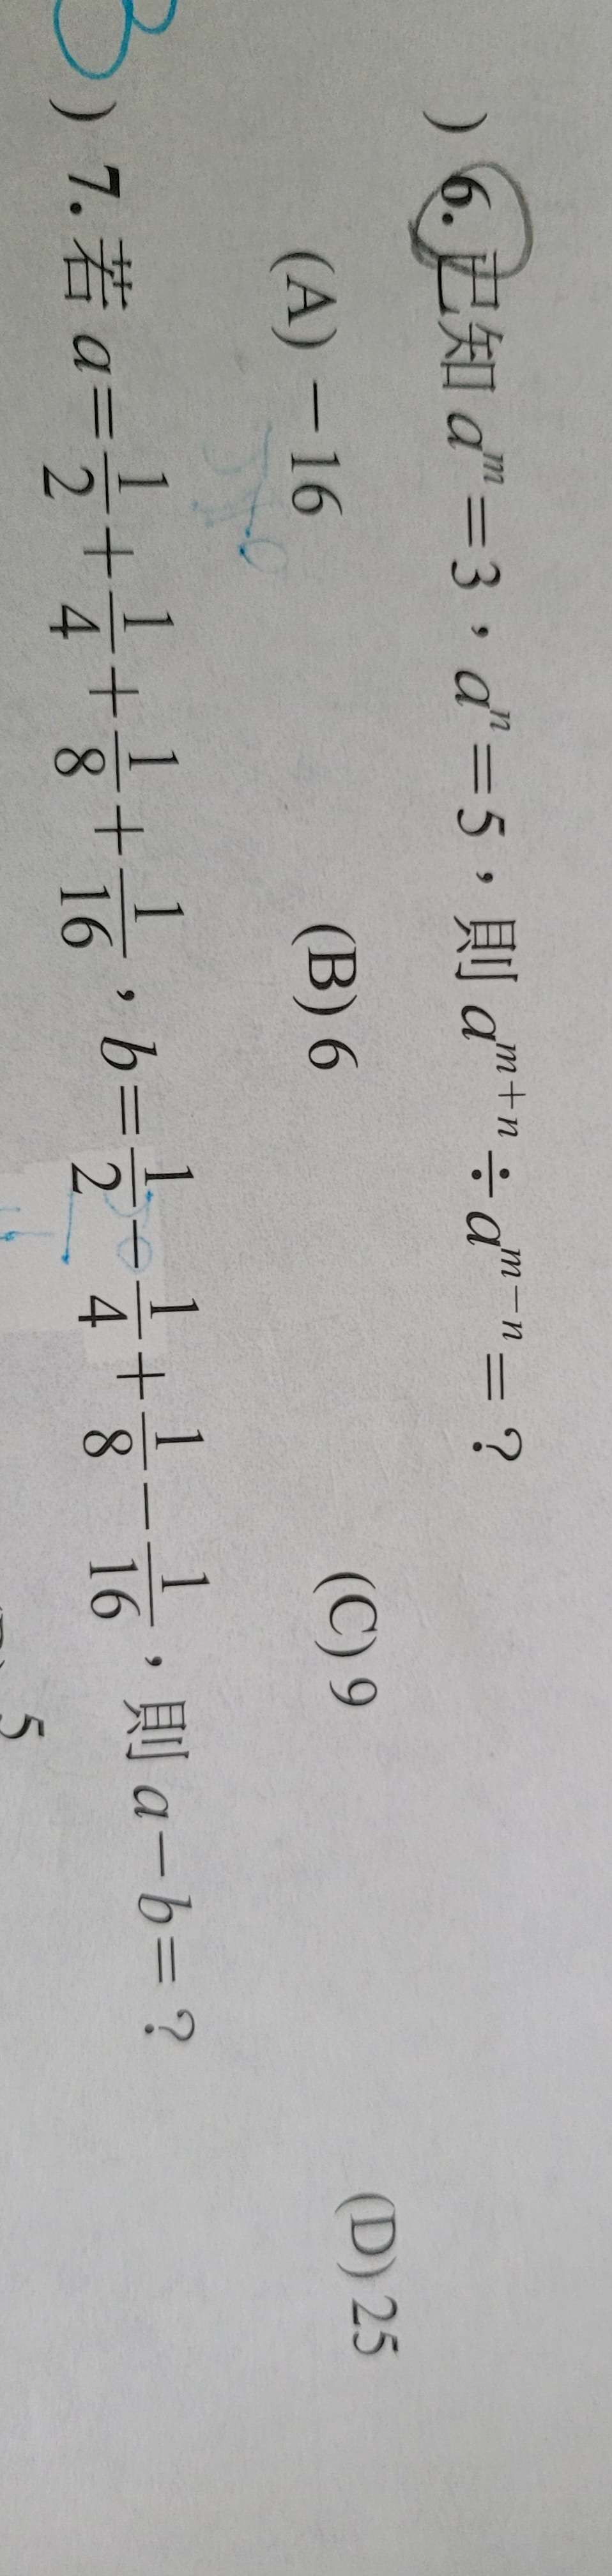 ) 6. 已知 aᵐ=3，aⁿ=5，則 aᵐ⁺ⁿ÷aᵐ⁻ⁿ=?
(A)－16 (B) 6 (C) 9 (D) 25
) 7. 若 a=1/2+1/4+1/8+1/16，b=1/2−1/4+1/8−1/16，則 a−b=?
5